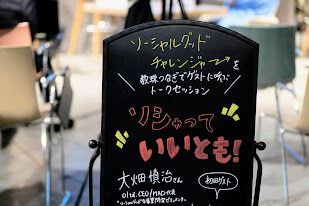 ソーシャルグッド
チャレンジャーを
数珠つなぎでゲストに呼ぶ
トークセッション
ソシャって
いいとも!
大畑慎治さん
O ltd. CEO/MAD代表
初回ゲスト